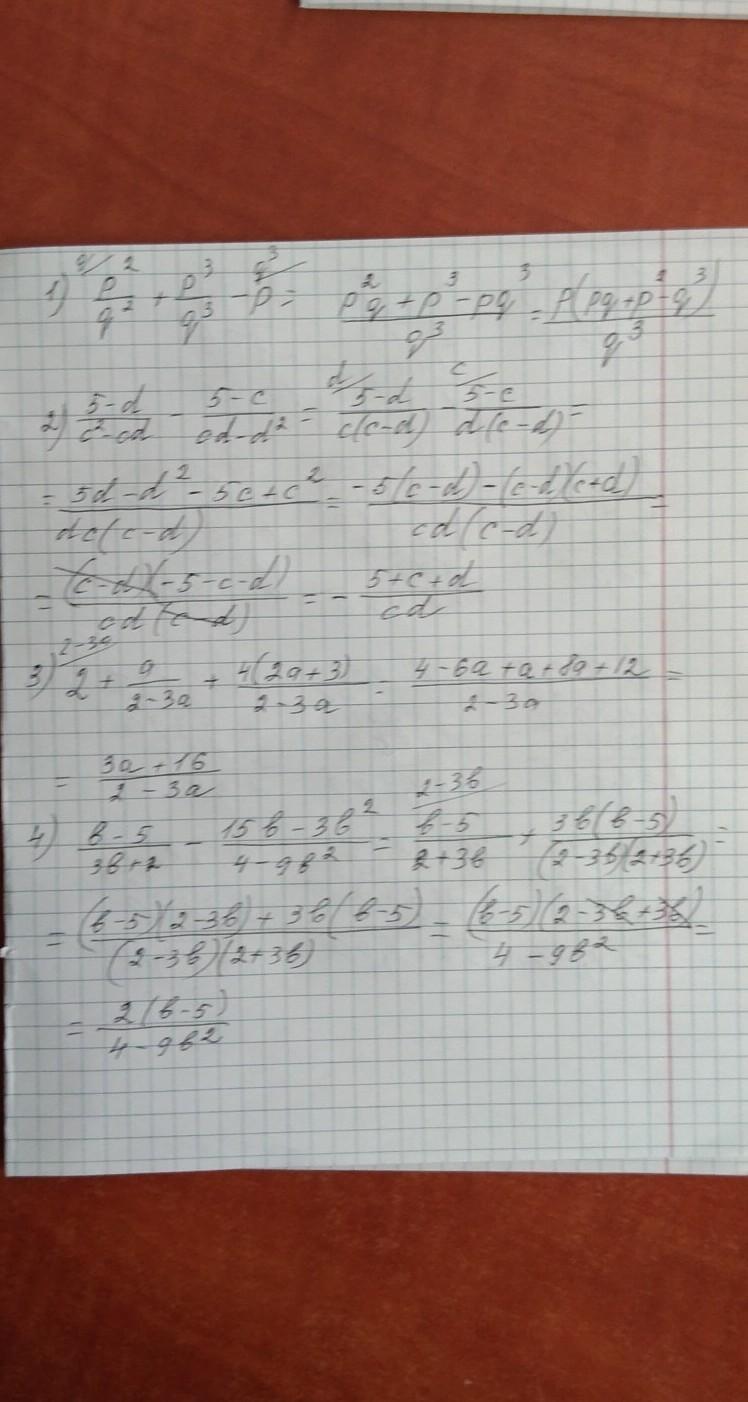 1) q/ p²/q² + p³/q³ - p q³/ = (p²q + p³ - pq³)/q³ = p(pq + p² - q³)/q³
2) (5-d)/(c²-cd) - (5-c)/(cd-d²) = d/ (5-d)/(c(c-d)) - c/ (5-c)/(d(c-d)) =
= (5d - d² - 5c + c²)/(dc(c-d)) = (-5(c-d) - (c-d)(c+d))/(cd(c-d)) =
= ((c-d)(-5-c-d))/(cd(c-d)) = - (5+c+d)/(cd)
3) 2-3a/ 2 + a/(2-3a) + 4(2a+3)/(2-3a) = (4-6a+a+8a+12)/(2-3a) =
= (3a+16)/(2-3a)
4) (в-5)/(3в+2) - (15в-3в²)/(4-9в²) = 2-3в/ (в-5)/(2+3в) + 3в(в-5)/((2-3в)(2+3в)) =
= ((в-5)(2-3в) + 3в(в-5))/((2-3в)(2+3в)) = ((в-5)(2-3в+3в))/(4-9в²) =
= 2(в-5)/(4-9в²)